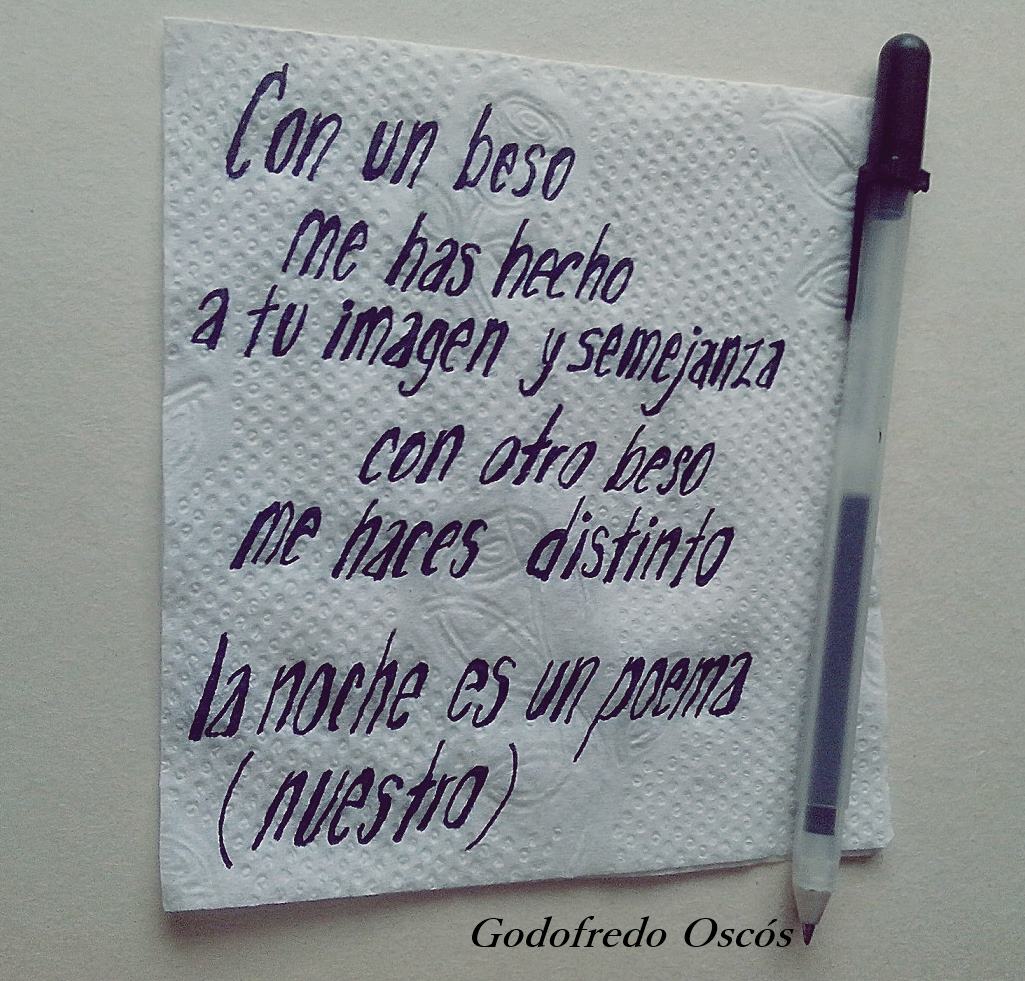 Con un beso
me has hecho
a tu imagen y semejanza
con otro beso
me haces distinto
la noche es un poema
(nuestro)
Godofredo Oscós